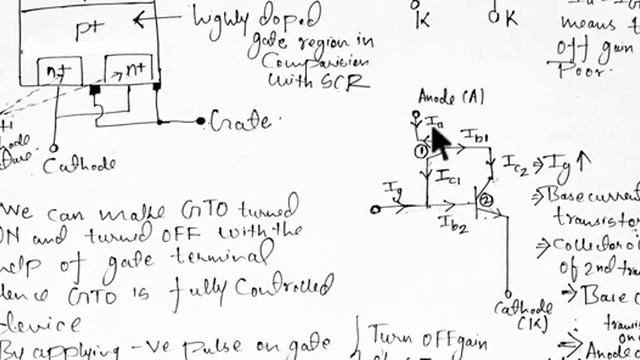 p+
n+
n+
Highly doped
gate region in
Comparision
with SCR
Gate
Cathode
K
K
means t
off gain
Poor.
Anode (A)
Ia
1
Ib1
Ic2 ⇒ Ig ↑
Ic1
Ig
Ib2
2
Cathode
(K)
⇒ Base current
transistor
⇒ Collector
of 2nd tra
→ Base c
transis
on
⇒ Anode
We can make GTO turned
ON and turned OFF with the
help of gate terminal
Hence GTO is fully controlled
device
By applying -ve pulse on gate
Turn OFF gain